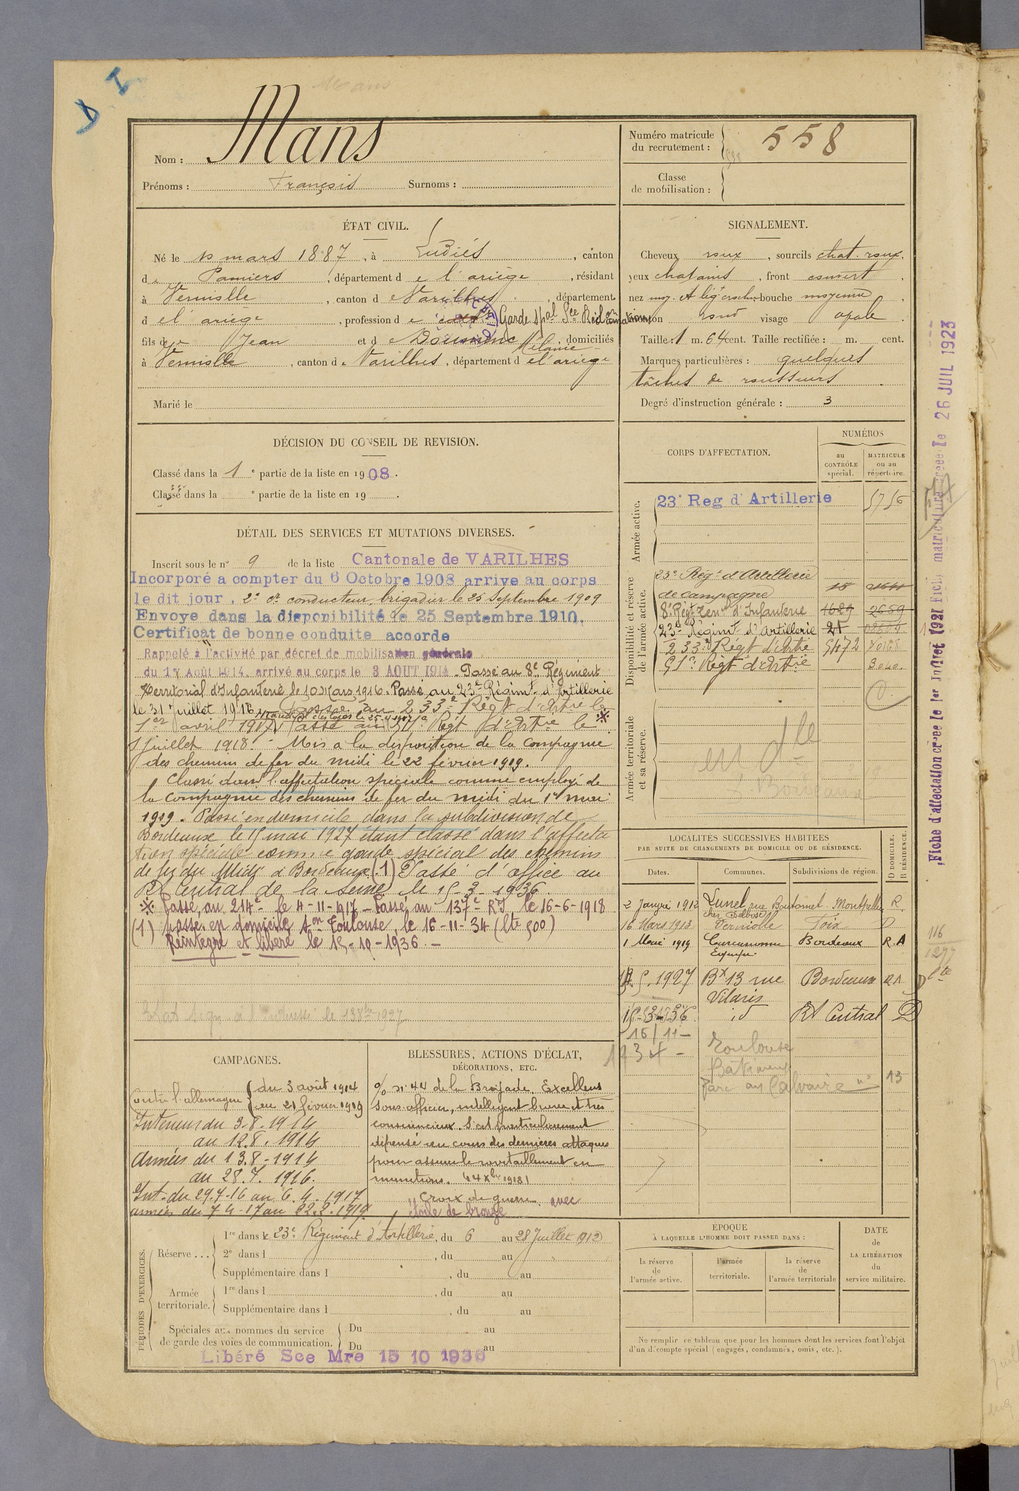 Nom : Mans
Prénoms : François Surnoms :
Numéro matricule du recrutement : 558
Classe de mobilisation :
ÉTAT CIVIL.
Né le mars 1887, à Ludiès, canton
de Pamiers, département de l'ariège, résidant
à Verniolle, canton de Varilhes, département
d el'ariège, profession de Garde spal
fils de Jean et de Mélanie, domiciliés
à Verniolle, canton de Varilhes, département d el'ariège
Marié le
SIGNALEMENT.
Cheveux roux, sourcils chat. roux
yeux chatains, front couvert
nez moy. bouche moyenne
menton rond visage ovale
Taille 1 m. 64 cent. Taille rectifiée : m. cent.
Marques particulières : quelques
tâches de rousseurs
Degré d'instruction générale : 3
DÉCISION DU CONSEIL DE REVISION.
Classé dans la 1e partie de la liste en 1908.
Classé dans la e partie de la liste en 19
DÉTAIL DES SERVICES ET MUTATIONS DIVERSES.
Inscrit sous le n° 9 de la liste Cantonale de VARILHES
Incorporé a compter du 6 Octobre 1908 arrive au corps
le dit jour, 2e cr conducteur, brigadier le 25 Septembre 1909
Envoye dans la disponibilité le 25 Septembre 1910.
Certificat de bonne conduite accorde
Rappelé à l'activité par décret de mobilisation générale
du 1er Août 1914. arrivé au corps le 3 AOUT 1914. Passé au 8e Régiment
Territorial d'Infanterie le 10 Mars 1916. Passé au 23e Régimt d'Artillerie
le 31 juillet 1916. Passé au 233e Régt d'Artrie le
1er avril 1917. Passé au Régt d'Artrie le ※
juillet 1918. Mis à la disposition de la Compagnie
des chemins de fer du midi le 22 février 1919.
Classé dans l'affectation spéciale comme employé de
la Compagnie des chemins de fer du midi du 1er mai
1919. Passé en domicile dans la subdivision de
Bordeaux le 15 mai 1927 étant classé dans l'affecta
tion spéciale comme garde spécial des chemins
de fer du Midi à Bordeaux (1) Passé d'office au
Rt Central de la Seine le 15-3-1936.
※ Passé au 214e le 4-11-1917 - Passé au 137e RI le 16-6-1918
(1) passé en domicile à Toulouse, le 16-11-34
Réintégré et libéré le 15-10-1936. -
CORPS D'AFFECTATION.
NUMÉROS
au CONTRÔLE spécial.
MATRICULE ou au répertoire.
Armée active.
23e Reg d'Artillerie 5756
Disponibilité et réserve de l'armée active.
23e Régt d'Artillerie
de campagne 18
8e Régt Terrl d'Infanterie
23e Régimt d'Artillerie 21
233e Régt d'Artie 5472
Régt d'Artie
Armée territoriale et sa réserve.
en dlle
Bordeaux
LOCALITÉS SUCCESSIVES HABITÉES
PAR SUITE DE CHANGEMENTS DE DOMICILE OU DE RÉSIDENCE.
Dates. Communes. Subdivisions de région. D DOMICILE. R RÉSIDENCE.
2 Janvier 1912 Lunel, rue Boutonnet Montpellier R
16 Mars 1913 Verniolle Foix D
1 1919 Carcassonne Bordeaux R.A
5.1927 Bx 13 rue Bordeaux
Vilaris
15-3-36 id Rt Central D
16/11-1934 - Toulouse
rue au Calvaire n° 13
CAMPAGNES.
Contre l'allemagne du 3 août 1914
au 21 février 1919
Intérieur du 3.8.1914
au 12.8.1914
Armées du 13.8-1914
au 28.7.1916.
Int. du 29.7-16 au 6.4.1917
armées du 7-4-17 au 22.2.1919
BLESSURES, ACTIONS D'ÉCLAT,
DÉCORATIONS, ETC.
O/ n° 44 de la Brigade. Excellent
sous-officier, intelligent brave et très
consciencieux. S'est particulièrement
dépensé au cours des dernières attaques
pour assurer le ravitaillement en
munitions. 4 Xbre 1918
Croix de guerre avec
étoile de bronze
PÉRIODES D'EXERCICES.
Réserve ... 1re dans le 23e Régiment d'Artillerie, du 6 au 28 Juillet 1912
2e dans l , du au
Supplémentaire dans l , du au
Armée territoriale. 1re dans l , du au
Supplémentaire dans l , du au
Spéciales aux hommes du service de garde des voies de communication. Du au
Du au
Libéré Sce Mre 15 10 1936
ÉPOQUE
À LAQUELLE L'HOMME DOIT PASSER DANS :
la réserve de l'armée active.
l'armée territoriale.
la réserve de l'armée territoriale
DATE
de
LA LIBÉRATION
du
service militaire.
Ne remplir ce tableau que pour les hommes dont les services font l'objet
d'un décompte spécial (engagés, condamnés, omis, etc.).
Fiche d'affectation créée le 1er Juillet 1921 Fiche matricule créée le 26 JUIL 1923